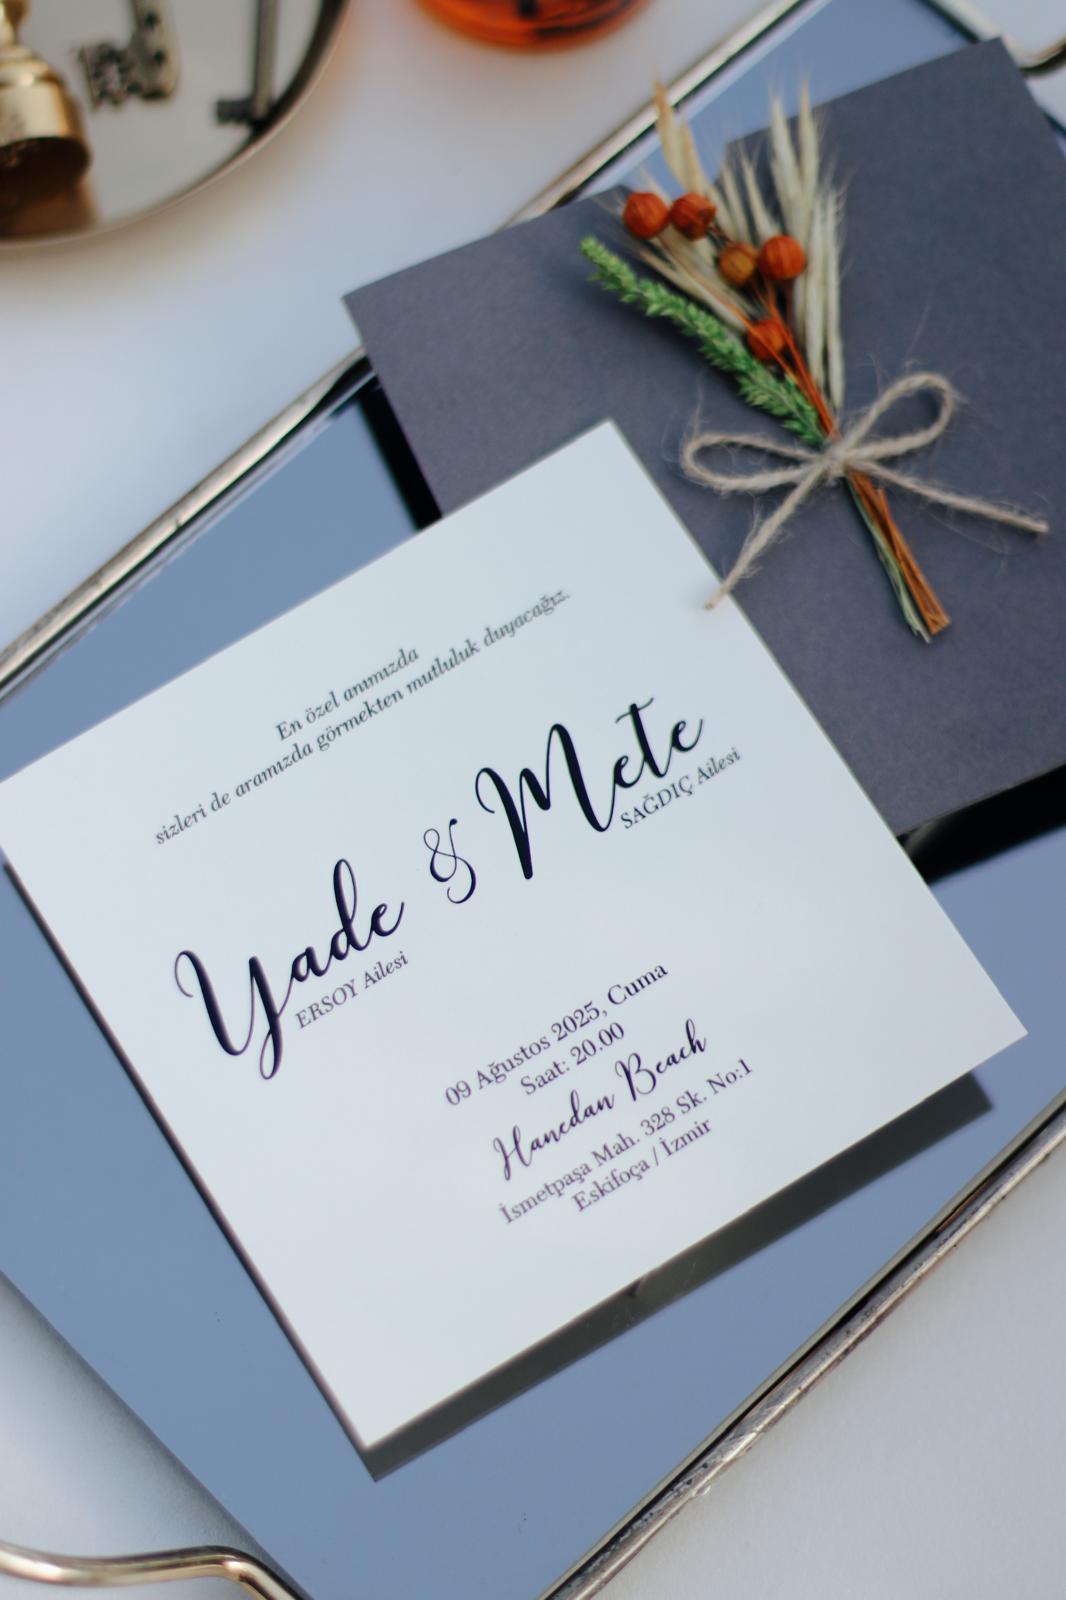 En özel anımızda
sizleri de aramızda görmekten mutluluk duyacağız.
Yade & Mete
ERSOY Ailesi
SAĞDIÇ Ailesi
09 Ağustos 2025, Cuma
Saat: 20.00
Hanedan Beach
İsmetpaşa Mah. 328 Sk. No:1
Eskifoça / İzmir